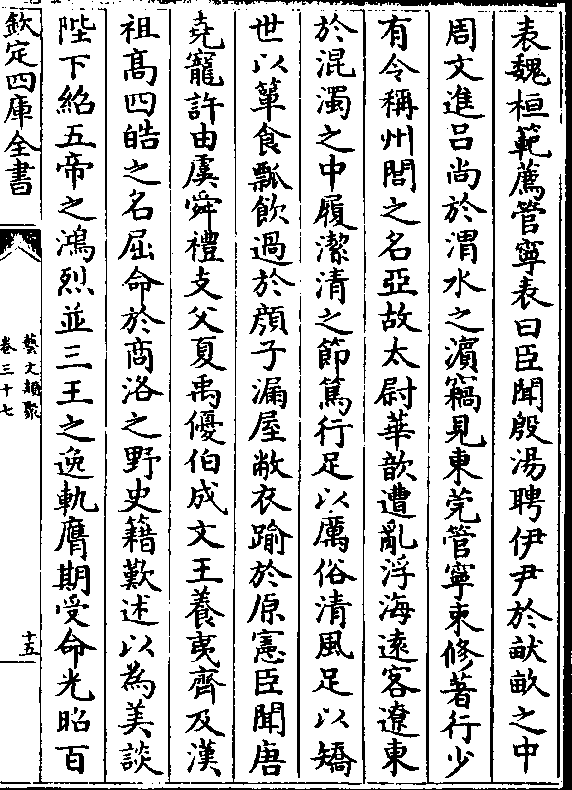 表魏桓範薦管寧表曰臣聞殷湯聘伊尹於畎畝之中
周文進呂尚於渭水之濵竊見東莞管寧束修著行少
有令稱州閭之名亞故太尉華歆遭亂浮海遠客遼東
於混濁之中履潔清之節篤行足以厲俗清風足以矯
世以簞食瓢飲過於顔子漏屋敝衣踰於原憲臣聞唐
堯寵許由虞舜禮支父夏禹優伯成文王養夷齊及漢
祖髙四皓之名屈命於商洛之野史籍歎述以為美談
陛下紹五帝之鴻烈並三王之逸軌膺期受命光昭百
欽定四庫全書
藝文類聚
卷三十七
十五